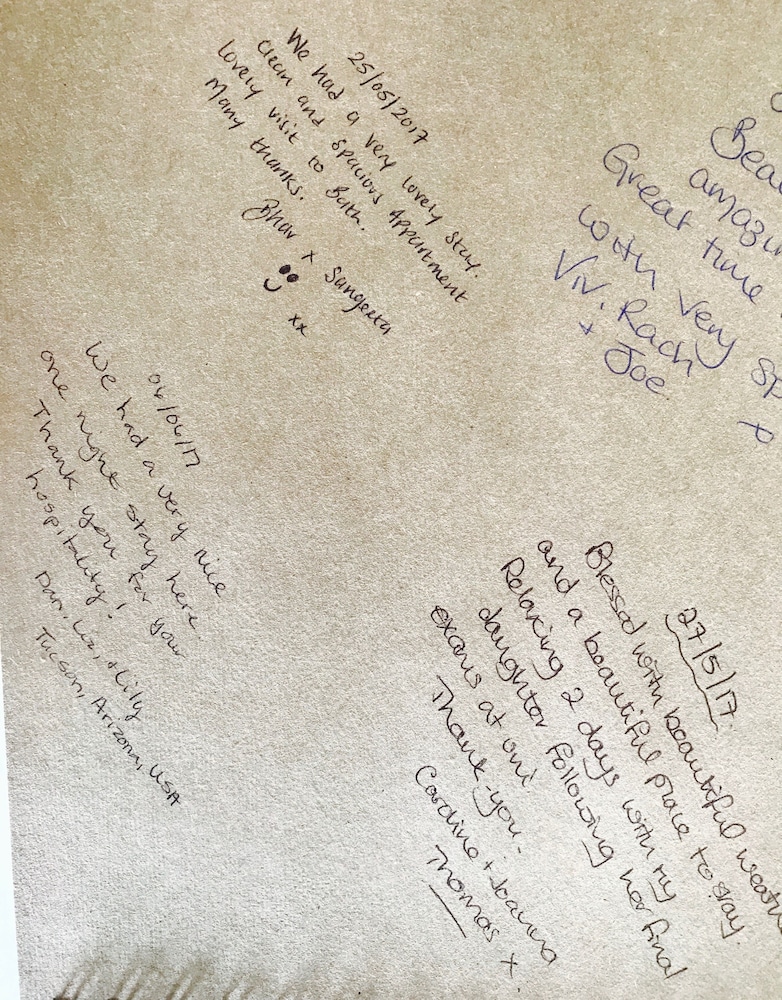 25/05/2017
We had a very lovely stay.
Clean and spacious Appartment
lovely visit to Bath.
Many thanks.
Bhav x Sangeeta
xx
Great time
with very
Viv, Rach
+ Joe
x
06/06/17
We had a very nice
one night stay here.
Thank you for your
hospitality!
Dan, Liz, + Lily
Tucson, Arizona, USA
27/5/17
Blessed with beautiful
and a beautiful place to stay.
Relaxing 2 days with my
daughter following her final
exams at uni
Thank-you.
Caroline + Joanna
Thomas x